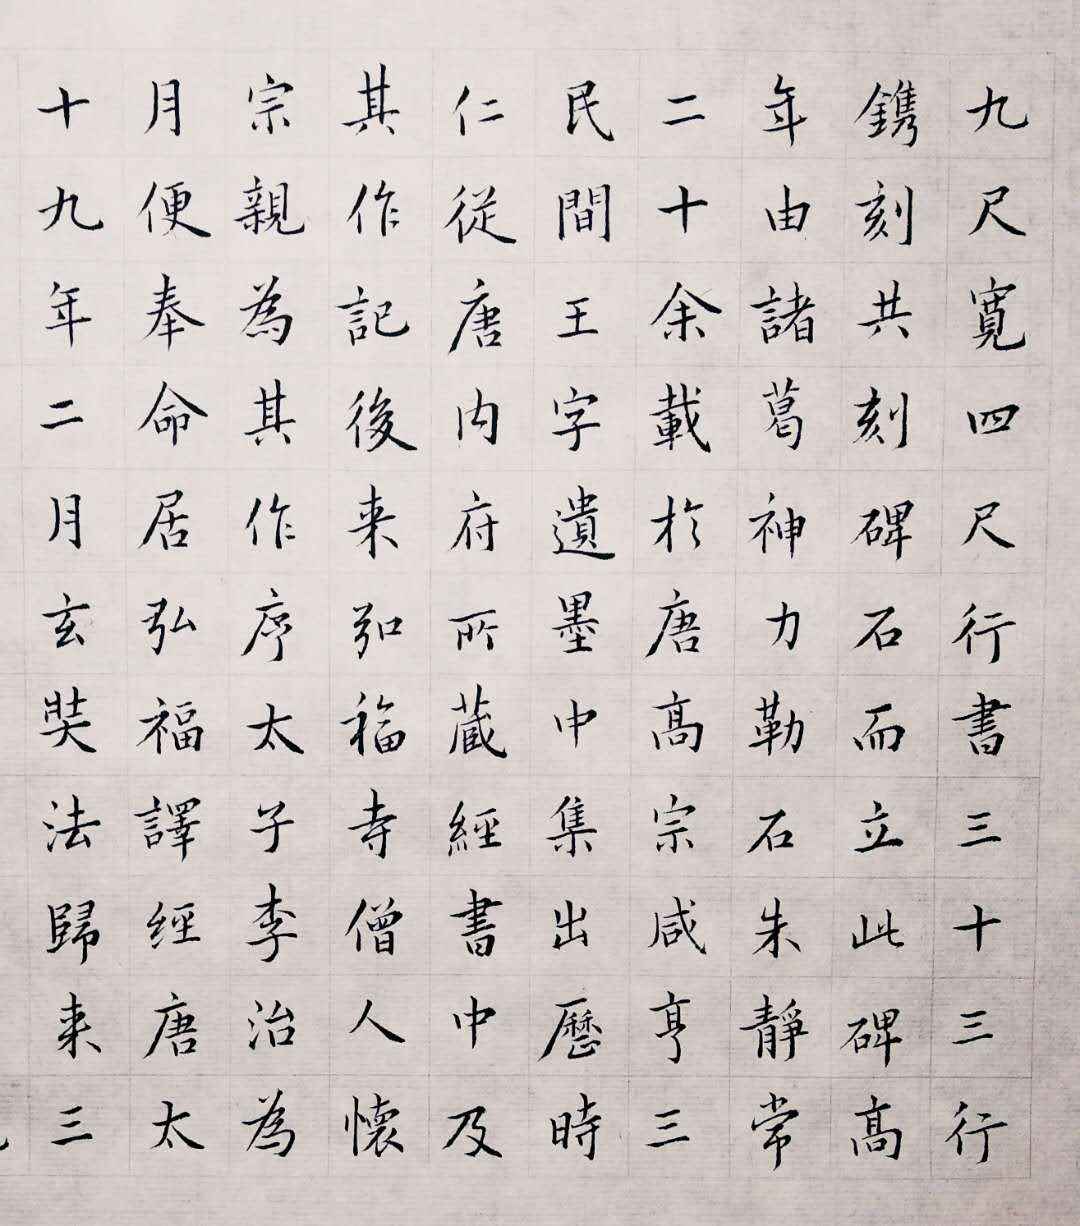 十九年二月玄奘法歸来三
月便奉命居弘福譯經唐太
宗親為其作序太子李治為
其作記後来弘福寺僧人懷
仁從唐内府所蔵經書中及
民間王字遺墨中集出歷時
二十余載於唐高宗咸亨三
年由諸葛神力勒石朱靜常
鐫刻共刻碑石而立此碑高
九尺寬四尺行書三十三行